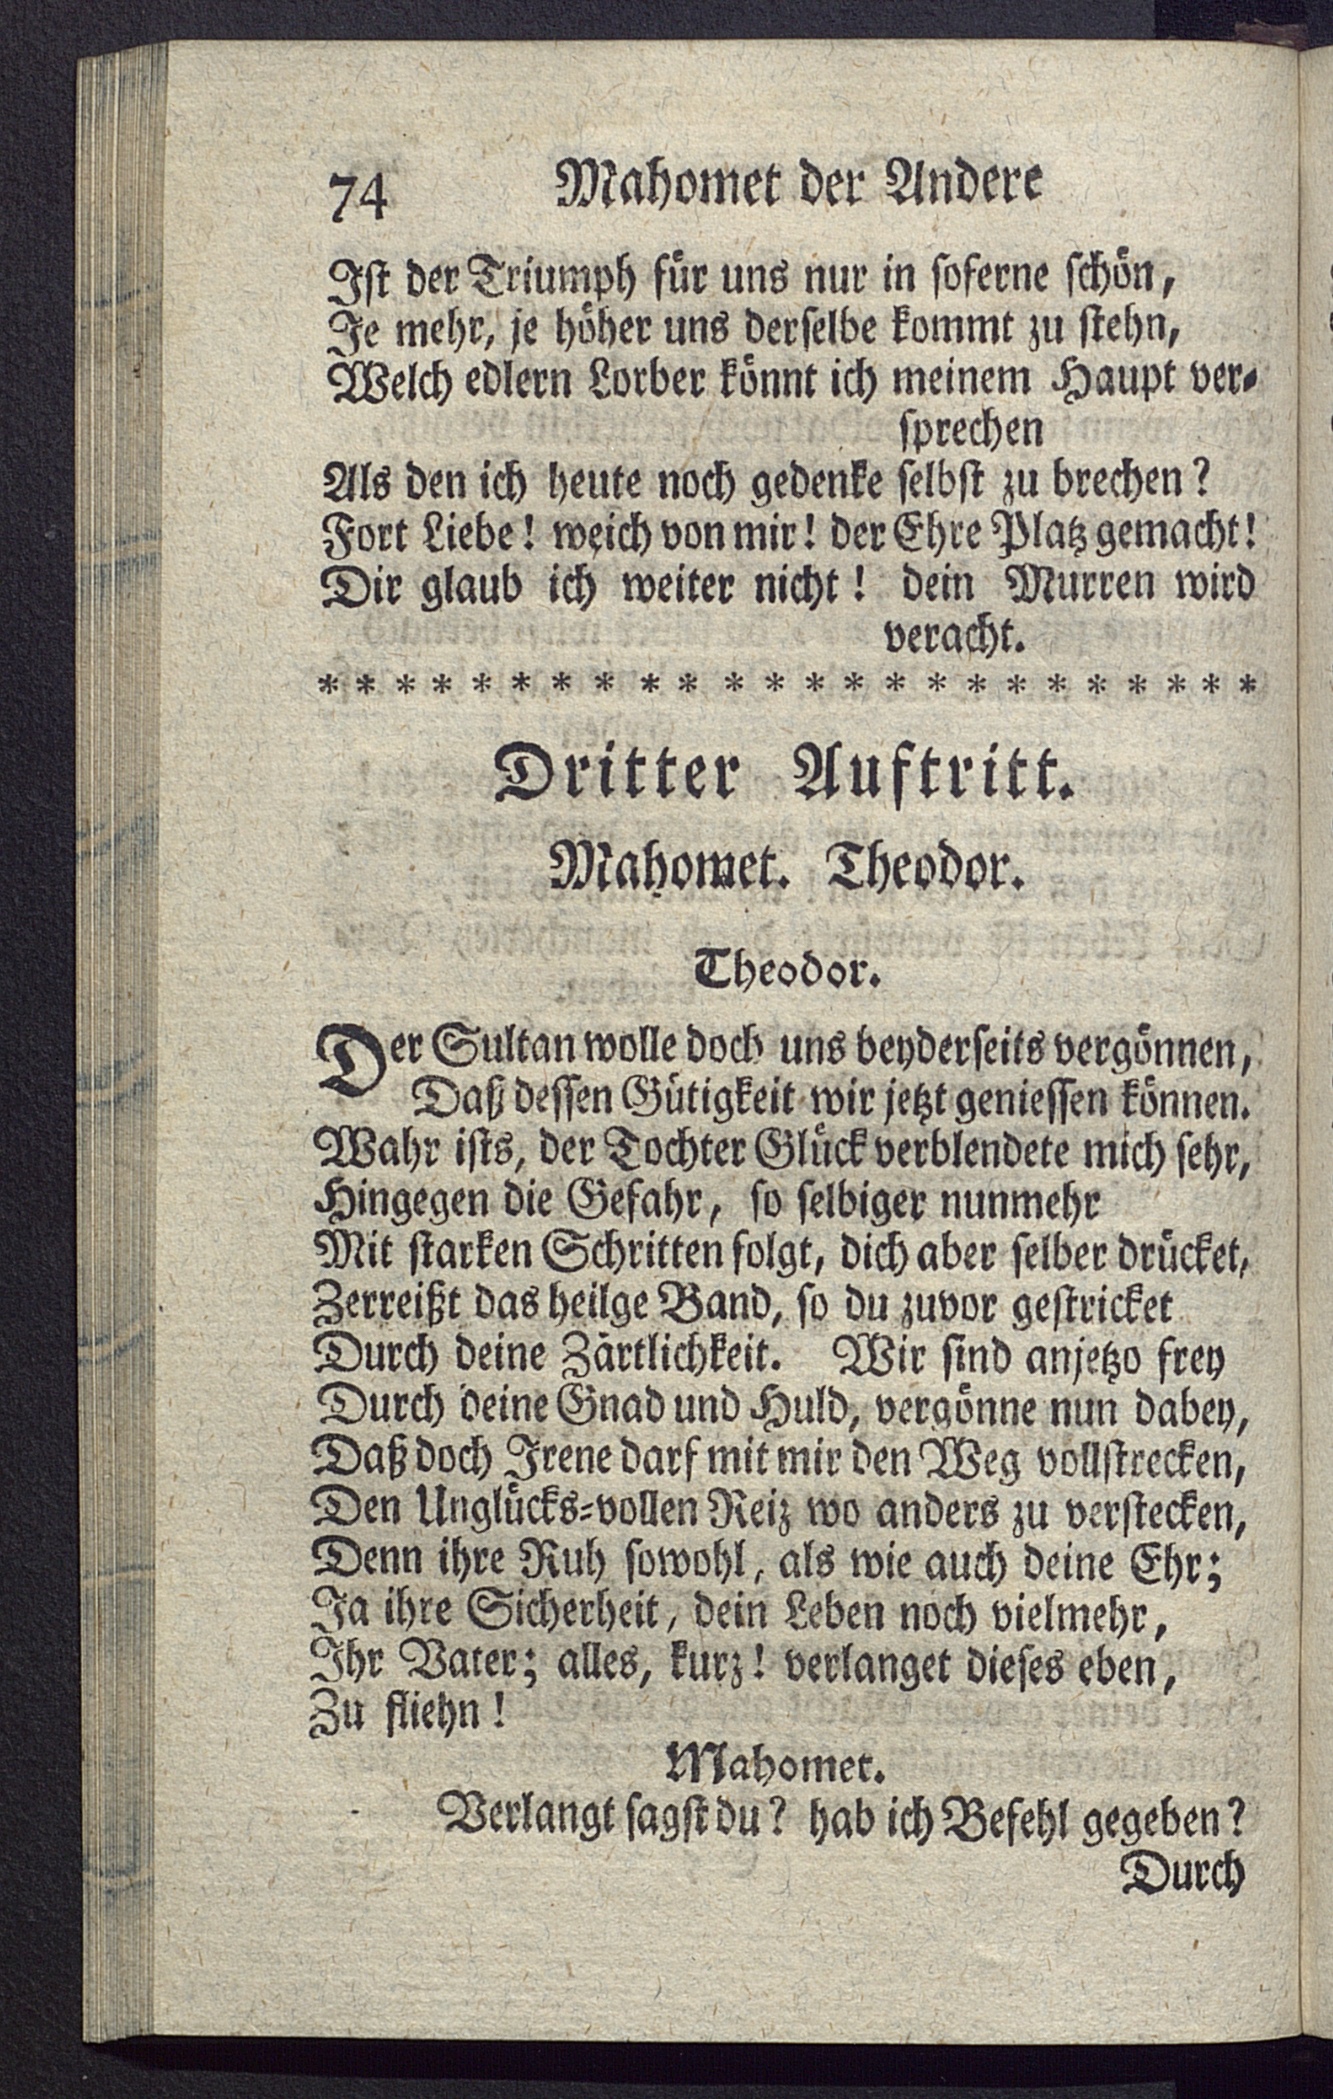 74 Mahomet der Andere
Iſt der Triumph für uns nur in ſoferne ſchön,
Je mehr, je höher uns derſelbe kommt zu ſtehn,
Welch edlern Lorber könnt ich meinem Haupt ver-
ſprechen
Als den ich heute noch gedenke ſelbſt zu brechen?
Fort Liebe! weich von mir! der Ehre Platz gemacht!
Dir glaub ich weiter nicht! dein Murren wird
veracht.
* * * * * * * * * * * * * * * * * * * * * * * *
Dritter Auftritt.
Mahomet. Theodor.
Theodor.
Der Sultan wolle doch uns beyderſeits vergönnen,
Daß deſſen Gütigkeit wir jetzt genieſſen können.
Wahr iſts, der Tochter Glück verblendete mich ſehr,
Hingegen die Gefahr, ſo ſelbiger nunmehr
Mit ſtarken Schritten folgt, dich aber ſelber drücket,
Zerreißt das heilge Band, ſo du zuvor geſtricket
Durch deine Zärtlichkeit. Wir ſind anjetzo frey
Durch deine Gnad und Huld, vergönne nun dabey,
Daß doch Irene darf mit mir den Weg vollſtrecken,
Den Unglücks-vollen Reiz wo anders zu verſtecken,
Denn ihre Ruh ſowohl, als wie auch deine Ehr;
Ja ihre Sicherheit, dein Leben noch vielmehr,
Ihr Vater; alles, kurz! verlanget dieſes eben,
Zu fliehn!
Mahomet.
Verlangt ſagſt du? hab ich Befehl gegeben?
Durch